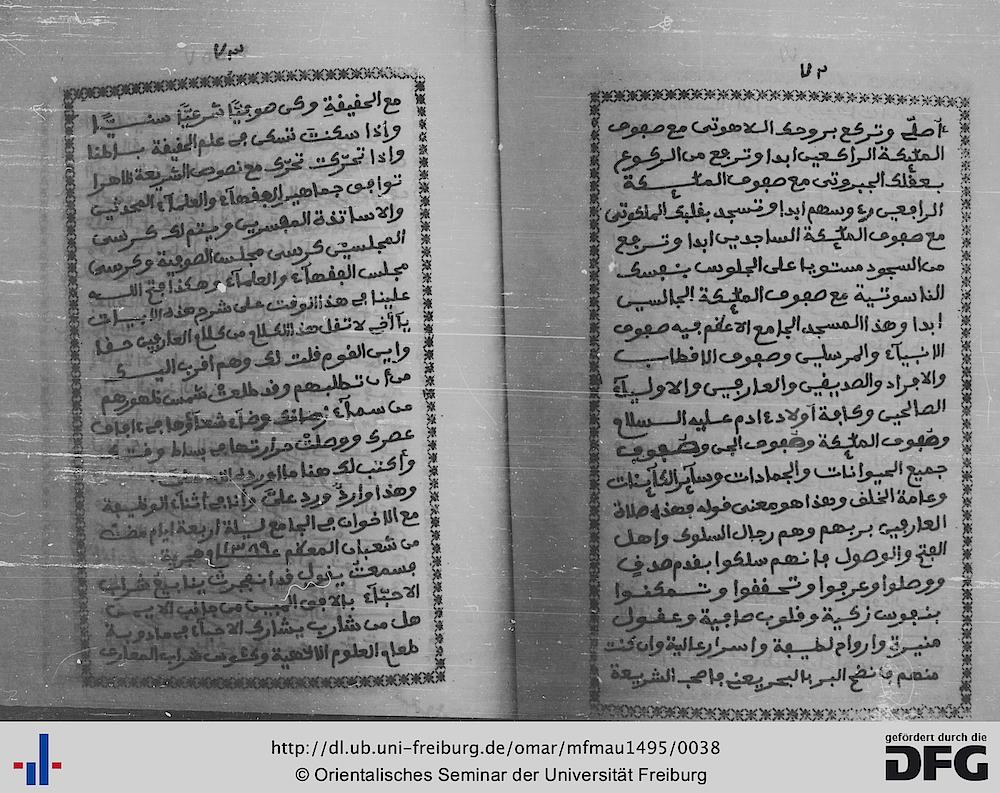 ٧٢
أصلّي وتركع بروحك اللاهوتي مع صفوف
الملئكة الراكعين ابدا وترجع من الركوع
بعقلك الجبروتي مع صفوف الملئكة
الرافعين رءوسهم ابدا وتسجد بقلبك الملكوتي
مع صفوف الملئكة الساجدين ابدا وترجع
من السجود مستويا على الجلوس بنفسك
الناسوتية مع صفوف الملئكة الجالسين
ابدا وهذا المسجد الجامع الاعظم فيه صفوف
الانبيآء والمرسلين وصفوف الاقطاب
والافراد والصديقين والعارفين والاوليآء
الصالحين وكافة أولاد ءادم عليه السلام
وصفوف الملئكة وصفوف الجن وصفوف
جميع الحيوانات والجمادات وسآئر الكآئنات
وعامة الخلق وهذا هو معنى قوله فهذه صلاة
العارفين بربهم وهم رجال السلوك واهل
الفتح والوصول فانهم سلكوا بقدم صدق
ووصلوا وعرجوا وتحققوا وتمكنوا
بنفوس زكية وقلوب صافية وعقول
منيرة وارواح لطيفة واسرار عالية وان كنت
منهم فانضح البر بالبحر يعني فاصحب الشريعة
٧٣
مع الحقيقة وكن صوفيًّا شرعيًّا سنيًّا
وإذا سكنت تسكن في علم الحقيقة باطنا
وإذا تحرّكت تحرّك مع نصوص الشريعة ظاهرا
توافق جماهير الفقهآء والعلمآء المحدثين
والاساتذة المفسرين ويتم لك كرسي
المجلسين كرسي مجلس الصوفية وكرسي
مجلس الفقهآء والعلمآء وهكذا فتح الله
علينا في هذا الوقت على شرح هذه الابيات
يا أخي لا تقل هذا الكلام من كلام العارفين حقا
واين القوم قلت لك وهم اقرب اليك
من أن تطلبهم وقد طلعت شمس ظهورهم
من سمآء زمانك وضآء شعاؤها في ءافاق
عصرك ووصلت حرارتها في بساط وقتك
وأكتب لك هنا ما
وهذا وارد ورد عليّ وأنا في أثنآء الوظيفة
مع الاخوان في الجامع ليلة اربعة ايام مضت
من شعبان المعظم ١٣٨٩ هجرية
فسمعت يقول قد انفجرت ينابيع شراب
الاحبّآء بالافق المبين من جانب الايمن
هل من شارب يشارك الاحبآء في مادوبة
طعام العلوم الالهية وكئوس شراب المعارف
http://dl.ub.uni-freiburg.de/omar/mfmau1495/0038
© Orientalisches Seminar der Universität Freiburg
gefördert durch die
DFG